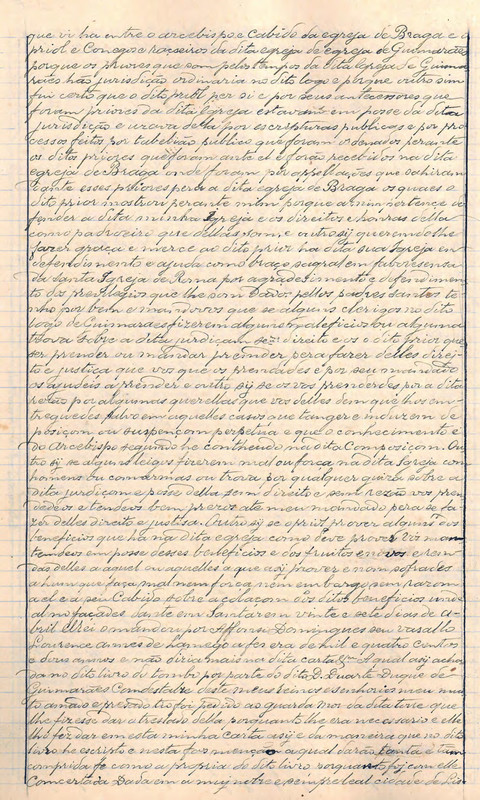 que vi ha entre o arcebispo e Cabido da egreja de Braga e o
priol e Conegos e raçoeiros da dita egreja de egreja de Guimarães
porque os priores que som pelos tempos da dita Egreja de Guima
rães hão jurisdição ordinaria no dito logo e porque outro sim
fui certo que o dito priol per si e por seus antecessores que
foram priores da dita Egreja estavam em posse da dita
jurisdição e usava della por escripturas publicas e por pro
cessos feitos por tabelião publico que foram ordenados perante
os ditos priores que foram ante el e forão recebidos na dita
egreja de Braga onde foram por appellações que sahiram
dante esses priores pera a dita egreja de Braga os quaes o
dito prior mostrou perante mim porque a mim pertence de
fender a dita minha Igreja e os direitos e honras della
como padroeiro que della som e outro sij querendo lhe
fazer graça e mercê ao dito prior ha dita sua Igreja em
defendimento e ajuda como braço sagral em favor
da Santa Igreja de Roma por agradecimento e defendimen
to dos previlegios que lhe som Dados pellos padres santos te
nho por bem e mando vos que se alguns clerigos no dito
logo de Guimaraes fizerem alguns maleficios ou alguma
sobre a dita jurdiçam sem direito e os o dito prior quer
ser prender ou mandar prender pera fazer delles direj
to e justiça que vos que os prendades e por seu mandado
os ajudeis a prender e outro sij se os vos prenderdes por a dita
rezão por algumas querellas que vos delles dem que lhos en
treguedes salvo em aquelles casos que tanger e induzem de
posiçom ou suspençom perpetua e que o conhecimento é
do Arcebispo segundo he contheudo na dita Composiçom. Ou
tro sij se alguns leigos fizerem mal ou força na dita Igreja com
homens ou com armas ou trova por qualquer guiza sobre a
dita jurdiçom e posse della sem direito e sem rezão vos pren
dedeos e tendeos bem prezos ate meu mandado pera se fa
zer delles direito e justisa. Outro sij se o priol prover alguns dos
beneficios que ha na dita egreja como deve prover Vós man
tendeos em posse desses beneficios e dos fruitos novos e ren
das delles a aquel ou aquelles a que asij prover e nom sofrades
a hum que faça mal nem força nem embargo sem razom
a el e á seu Cabido sobre a colaçom dos ditos beneficios um
al no façades. Dante em Santarem vinte e sete dias de a-
bril Elrei o mandou por Affonso Domingues seu vasallo
Lourenço annes de Lamego a fes era de mil e quatro centos
e dous annos e não dizia mais na dita carta &ª A qual asij acha
da no dito livro do tombo por parte do dito D. Duarte Duque de
Guimarães Condestabre destes meus reinos e senhorios meu mui
to amado e prezado tio foi pedido ao guarda mor da dita torre que
lhe fizesse dar o treslado della porquanto lhe era necessario e elle
lho fez dar em esta minha carta asij e da maneira que no dito
livro he escripto e nesta faz menção a qual darão tanta é tam
comprida fe como a propria do dito livro porquanto foj com elle
Concertada Dada em a muj nobre e sempre leal cidade de Lis